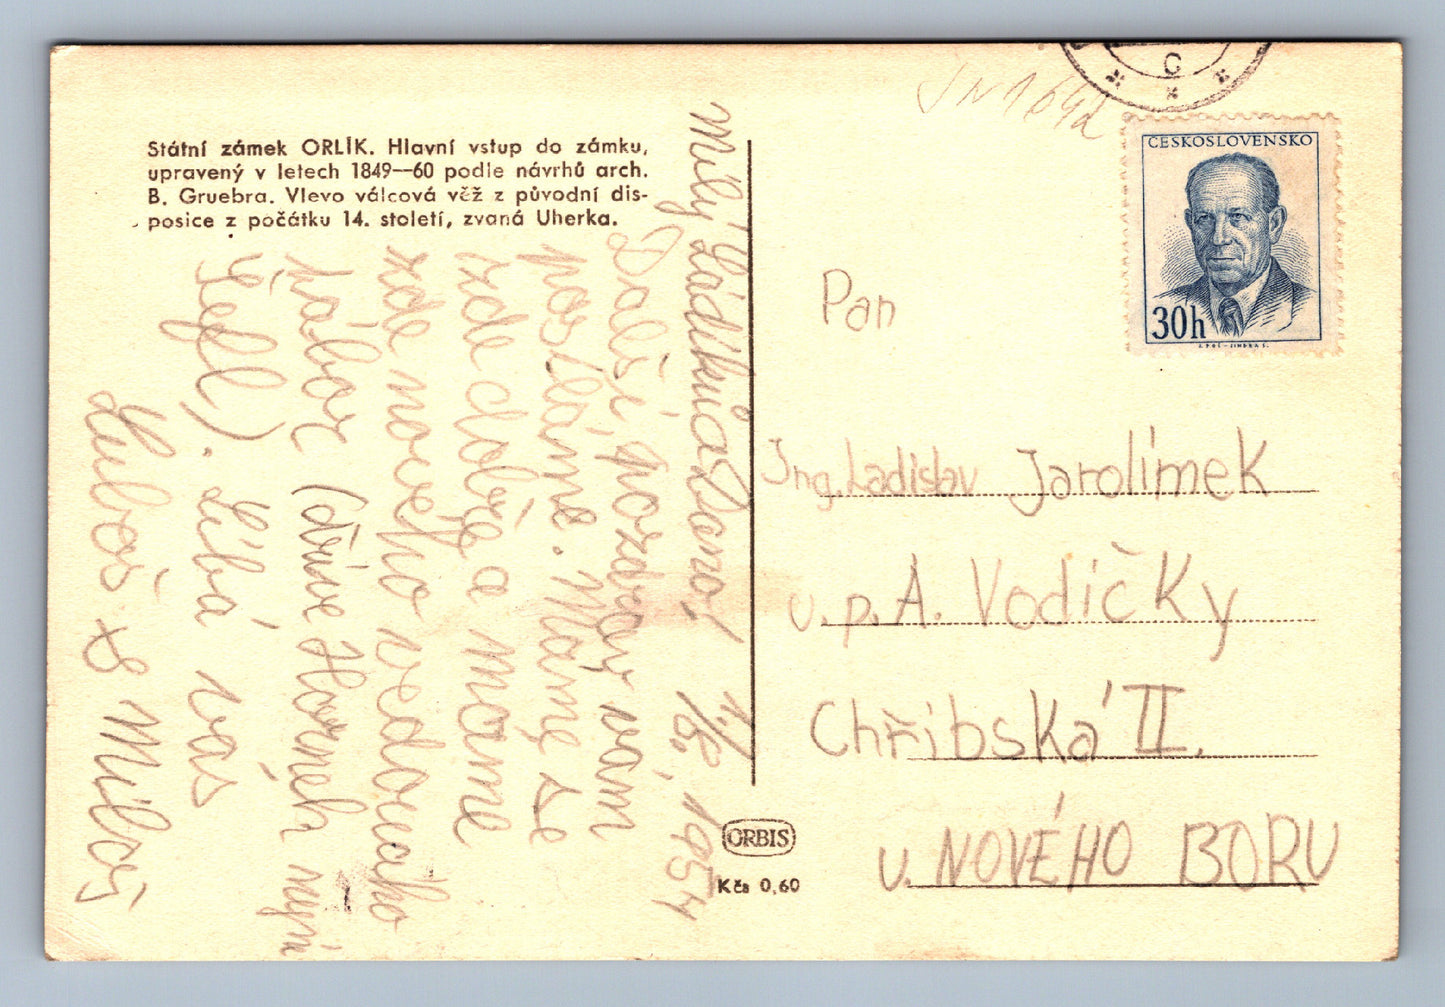 Státní zámek ORLÍK. Hlavní vstup do zámku,
upravený v letech 1849—60 podle návrhů arch.
B. Gruebra. Vlevo válcová věž z původní dis-
posice z počátku 14. století, zvaná Uherka.
Milý Ládíku a Dano!
1./8. 1954
Další pozdrav vám
posíláme. Máme se
zde dobře a máme
zde nového vedoucího
tábor (dříve Horněh nyní
Šéfl). Líbá vás
Luboš & Miloš
C
ČESKOSLOVENSKO
30h
Pan
Ing. Ladislav Jarolímek
u. p. A. Vodičky
Chřibská II.
u. NOVÉHO BORU
ORBIS
Kčs 0,60